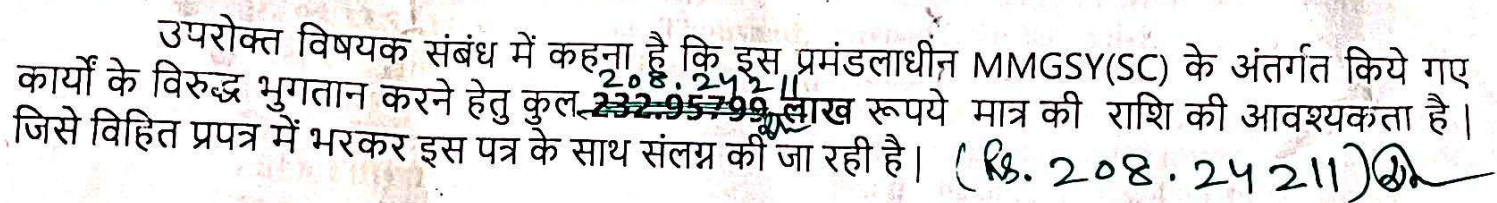 उपरोक्त विषयक संबंध में कहना है कि इस प्रमंडलाधीन MMGSY(SC) के अंतर्गत किये गए
208.24211
कार्यों के विरुद्ध भुगतान करने हेतु कुल 232.95799 लाख रूपये मात्र की राशि की आवश्यकता है |
जिसे विहित प्रपत्र में भरकर इस पत्र के साथ संलग्न की जा रही है | (Rs. 208.24211)